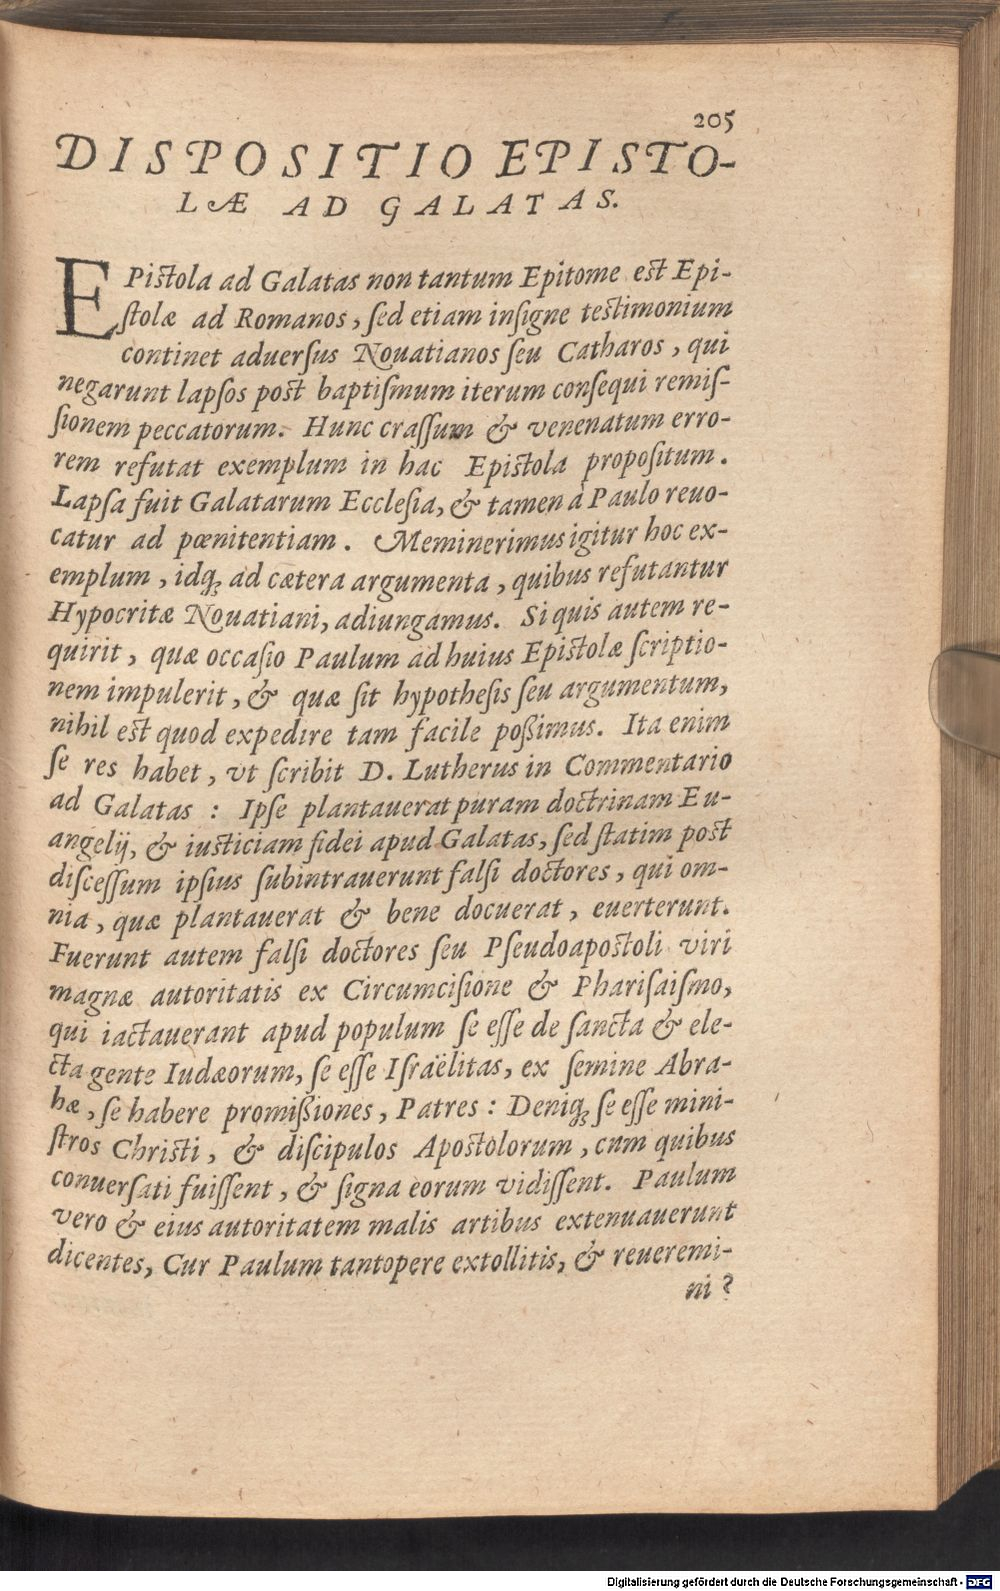 205
DISPOSITIO EPISTO-
LÆ AD GALATAS.
EPistola ad Galatas non tantum Epitome est Epi-
ſtolæ ad Romanos, ſed etiam inſigne testimonium
continet aduerſus Nouatianos ſeu Catharos, qui
negarunt lapſos post baptiſmum iterum conſequi remiſ-
ſionem peccatorum. Hunc craſſum & venenatum erro-
rem refutat exemplum in hac Epistola propoſitum.
Lapſa fuit Galatarum Eccleſia, & tamen à Paulo reuo-
catur ad pœnitentiam. Meminerimus igitur hoc ex-
emplum, idq; ad cætera argumenta, quibus refutantur
Hypocritæ Nouatiani, adiungamus. Si quis autem re-
quirit, quæ occaſio Paulum ad huius Epistolæ ſcriptio-
nem impulerit, & quæ ſit hypotheſis ſeu argumentum,
nihil est quod expedire tam facile poßimus. Ita enim
ſe res habet, vt ſcribit D. Lutherus in Commentario
ad Galatas: Ipſe plantauerat puram doctrinam Eu-
angelij, & iusticiam fidei apud Galatas, ſed ſtatim post
diſceſſum ipſius ſubintrauerunt falſi doctores, qui om-
nia, quæ plantauerat & bene docuerat, euerterunt.
Fuerunt autem falſi doctores ſeu Pſeudoapostoli viri
magnæ autoritatis ex Circumciſione & Phariſaiſmo,
qui iactauerant apud populum ſe eſſe de ſancta & ele-
cta gente Iudæorum, ſe eſſe Iſraëlitas, ex ſemine Abra-
hæ, ſe habere promißiones, Patres: Deniq; ſe eſſe mini-
ſtros Christi, & diſcipulos Apostolorum, cum quibus
conuerſati fuiſſent, & ſigna eorum vidiſſent. Paulum
vero & eius autoritatem malis artibus extenuauerunt
dicentes, Cur Paulum tantopere extollitis, & reueremi-
ni?
Digitalisierung gefördert durch die Deutsche Forschungsgemeinschaft - DFG